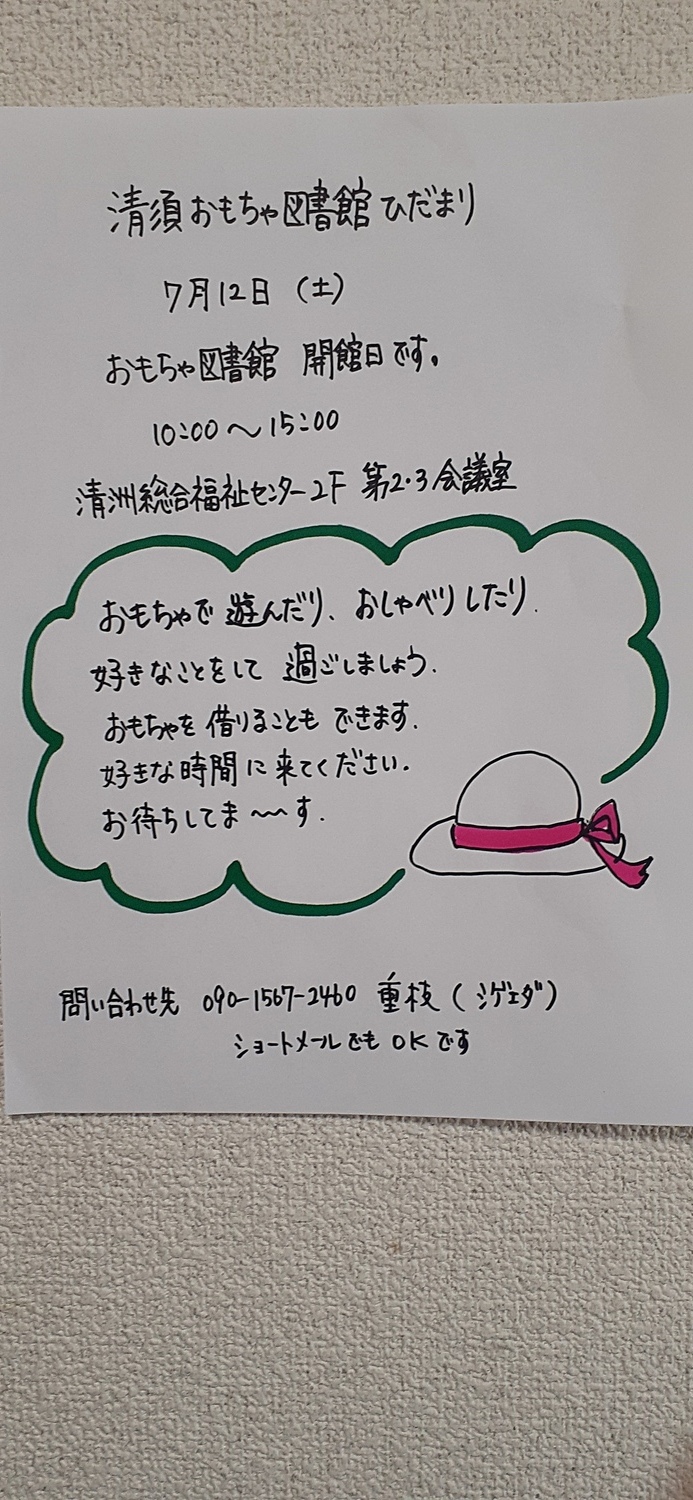 清須おもちゃ図書館ひだまり
7月12日（土）
おもちゃ図書館 開館日です。
10:00〜15:00
清洲総合福祉センター2F 第2・3会議室
おもちゃで遊んだり、おしゃべりしたり.
好きなことをして 過ごしましょう.
おもちゃを借りることも できます.
好きな時間に来てください.
お待ちしてま〜〜す.
問い合わせ先 090-1567-2460 重枝（シゲエダ）
ショートメールでも OKです